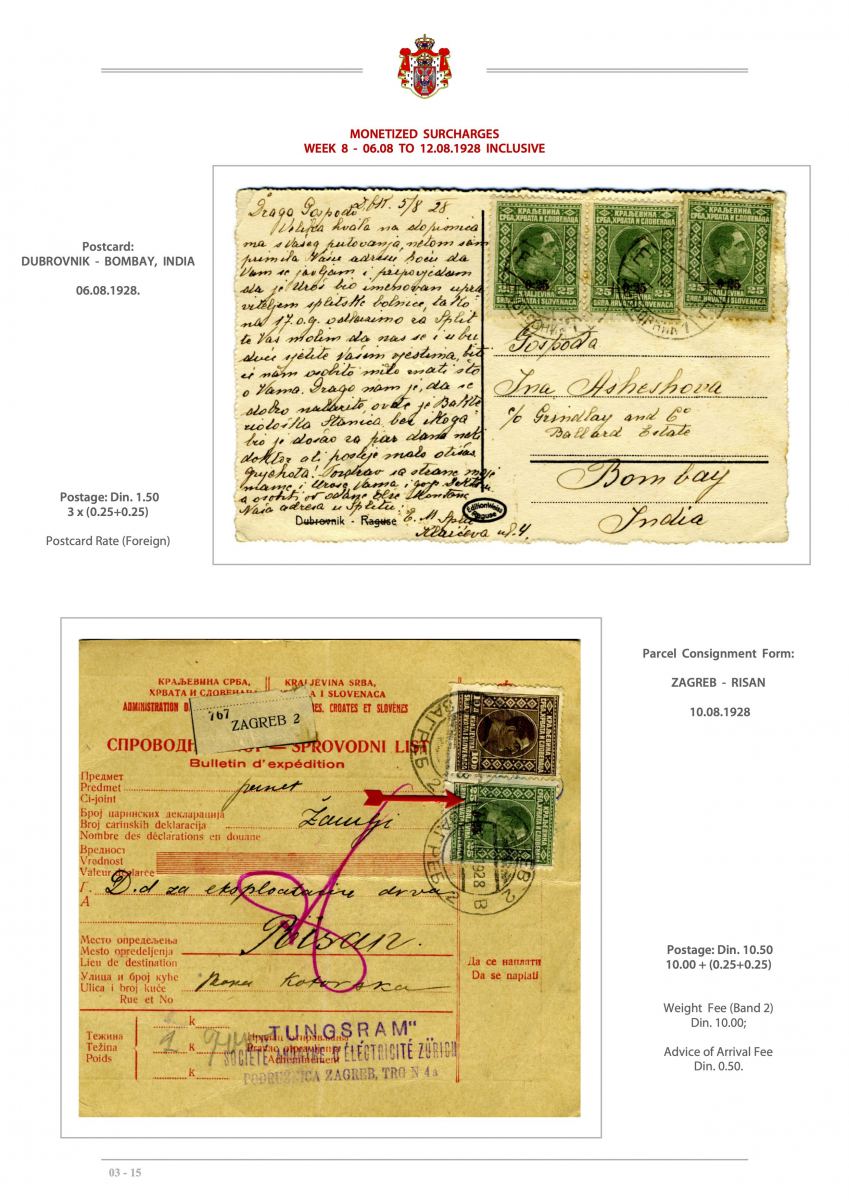 MONETIZED SURCHARGES
WEEK 8 - 06.08 TO 12.08.1928 INCLUSIVE
Postcard:
DUBROVNIK - BOMBAY, INDIA
06.08.1928.
Postage: Din. 1.50
3 x (0.25+0.25)
Postcard Rate (Foreign)
5/8 28
Velika hvala na dopisnica
ma s Vašeg putovanja, netom sam
primila Vašu adresu hoću da
Vam se javljam i pripovjedam
da je Uroš bio imenovan upra
viteljem splitske bolnice, tako
na 17. o.g. odlazimo za Split
te Vas molim da nas se i u bu
duće sjetite Vašim vjestima, bit
će nam osobito milo znati što
o Vama. Drago nam je, da se
dobro nalazite, ovdje je Bakte
riološka Stanica bez ikoga
bio je došao za par dana neki
doktor ali poslije malo otišao
Grjehota! Pozdrav sa strane moje
mame i Uroša Vama i gosp.
Naša adresa u Splitu:
Dubrovnik - Raguse
КРАЉЕВИНА
СРБА, ХРВАТА И СЛОВЕНАЦА
0·25
KRALJEVINA
25 SRBA, HRVATA I SLOVENACA 25
КРАЉЕВИНА
СРБА, ХРВАТА И СЛОВЕНАЦА
0·25
KRALJEVINA
25 SRBA, HRVATA I SLOVENACA 25
КРАЉЕВИНА
СРБА, ХРВАТА И СЛОВЕНАЦА
0·25
KRALJEVINA
25 SRBA, HRVATA I SLOVENACA 25
Gospođa
Ina Asheshova
c/o Grindlay and Co
Ballard Estate
Bombay
India
Edition Weiss
Raguse
Parcel Consignment Form:
ZAGREB - RISAN
10.08.1928
КРАЉЕВИНА СРБА, KRALJEVINA SRBA,
ХРВАТА И СЛОВЕНАЦА I SLOVENACA
ADMINISTRATION CROATES ET SLOVÈNES
767 ZAGREB 2
СПРОВОДНИ — SPROVODNI LIST
Bulletin d'expédition
Предмет
Predmet
Ci-joint
Број царинских декларација
Broj carinskih deklaracija
Nombre des déclarations en douane
Вредност
Vrednost
Valeur déclarée
Г. D.d za eksploataciju drva
A
Место опредељења
Mesto opredeljenja Risan.
Lieu de destination
Улица и број куће
Ulica i broj kuće Boka Kotorska
Rue et No
Да се наплати
Da se naplati
Тежина
Težina
Poids
k
k
k
Acheminement
"TUNGSRAM"
SOCIÉTÉ ANONYME D'ÉLECTRICITÉ ZÜRICH
PODRUŽNICA ZAGREB, TRG N 4a
ЗАГРЕБ 2
Postage: Din. 10.50
10.00 + (0.25+0.25)
Weight Fee (Band 2)
Din. 10.00;
Advice of Arrival Fee
Din. 0.50.
03 - 15